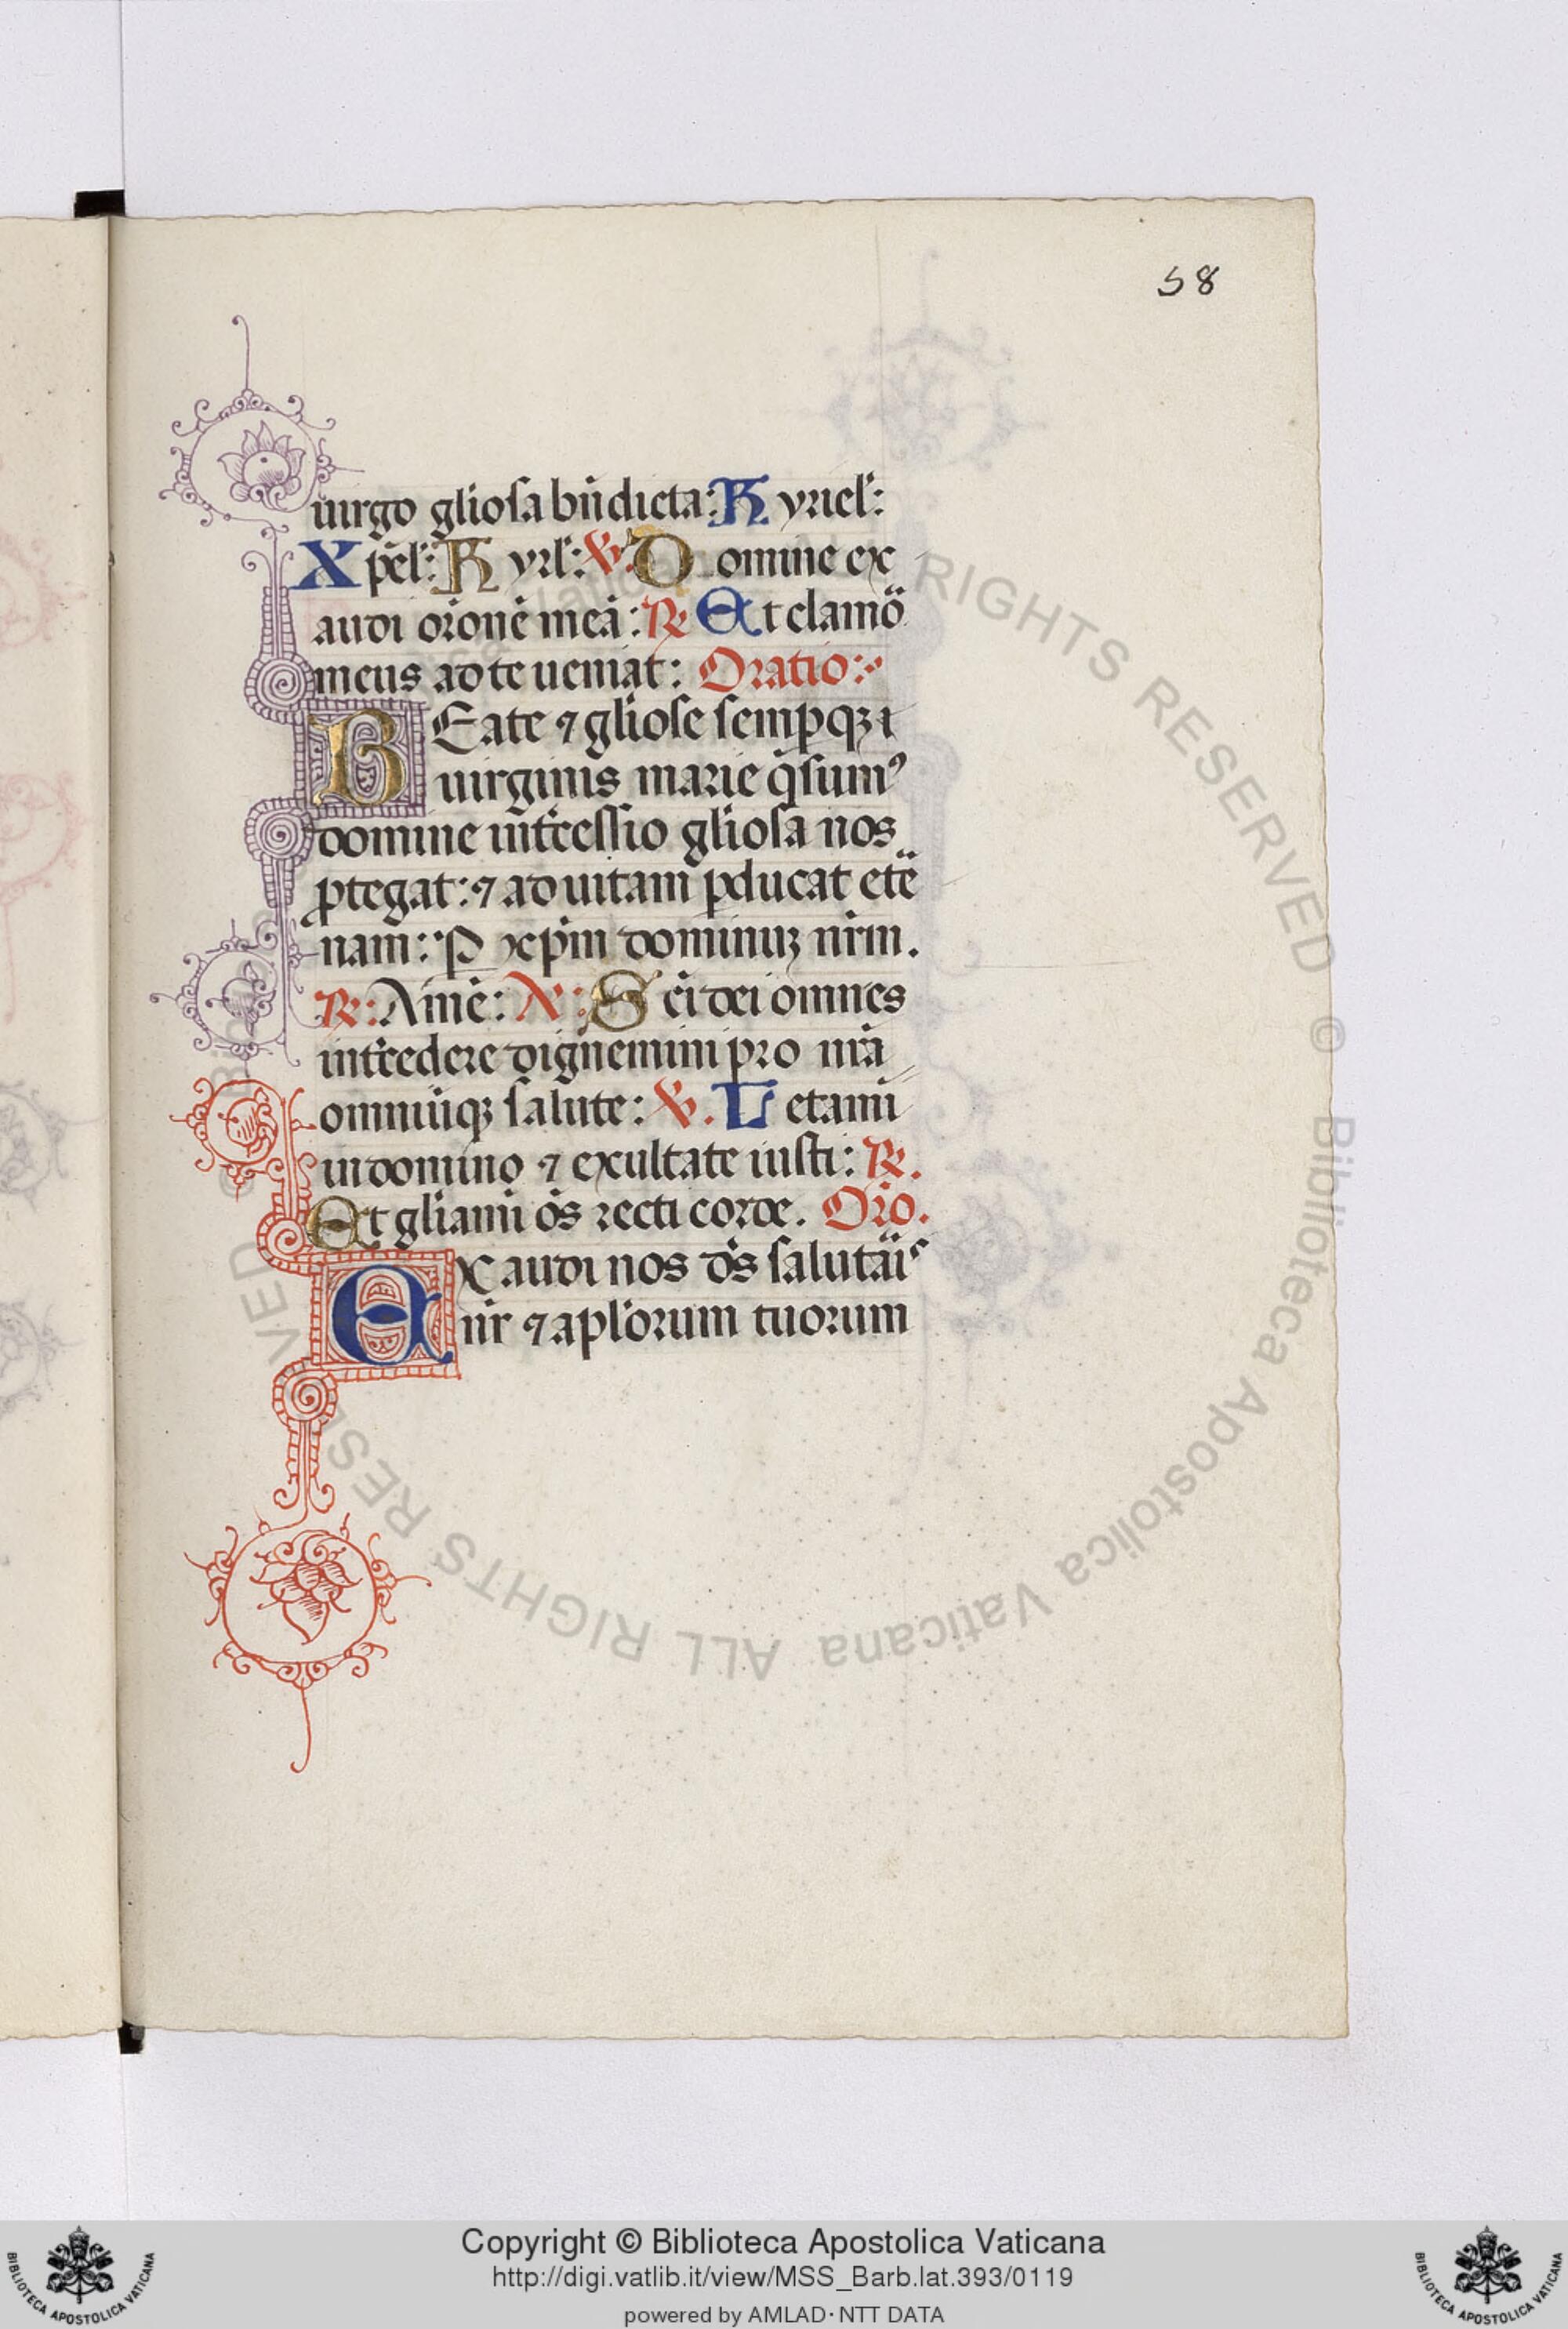 58
uirgo gliosa bn̄dicta: K yriel':
X pēl': K yrl': ℣. D omine ex
audi orōnē meā: ℟ Et clamo᷑
meus ad te ueniat: Oratio:·
B Eate ⁊ gliose semꝑqꝫ ı
uirginis marie q̄sumꝰ
domine int̄cessio gliosa nos
ꝓtegat: ⁊ ad uitam ꝑducat et᷑e
nam: ꝑ xp̄m dominuꝫ nr̄m.
℟: Amē: A: S c̄i dei omnes
int̄cedere dignemini pro nrā
omniūqꝫ salute: ℣. L etami
in domino ⁊ exultate iusti: ℟.
Et gliami ōs recti corde. Orō.
E X audi nos ds̄ salutaīs
nr̄ ⁊ aplōrum tuorum
© Biblioteca Apostolica Vaticana ALL RIGHTS RESERVED
Copyright © Biblioteca Apostolica Vaticana
http://digi.vatlib.it/view/MSS_Barb.lat.393/0119
powered by AMLAD·NTT DATA
BIBLIOTECA APOSTOLICA VATICANA
BIBLIOTECA APOSTOLICA VATICANA